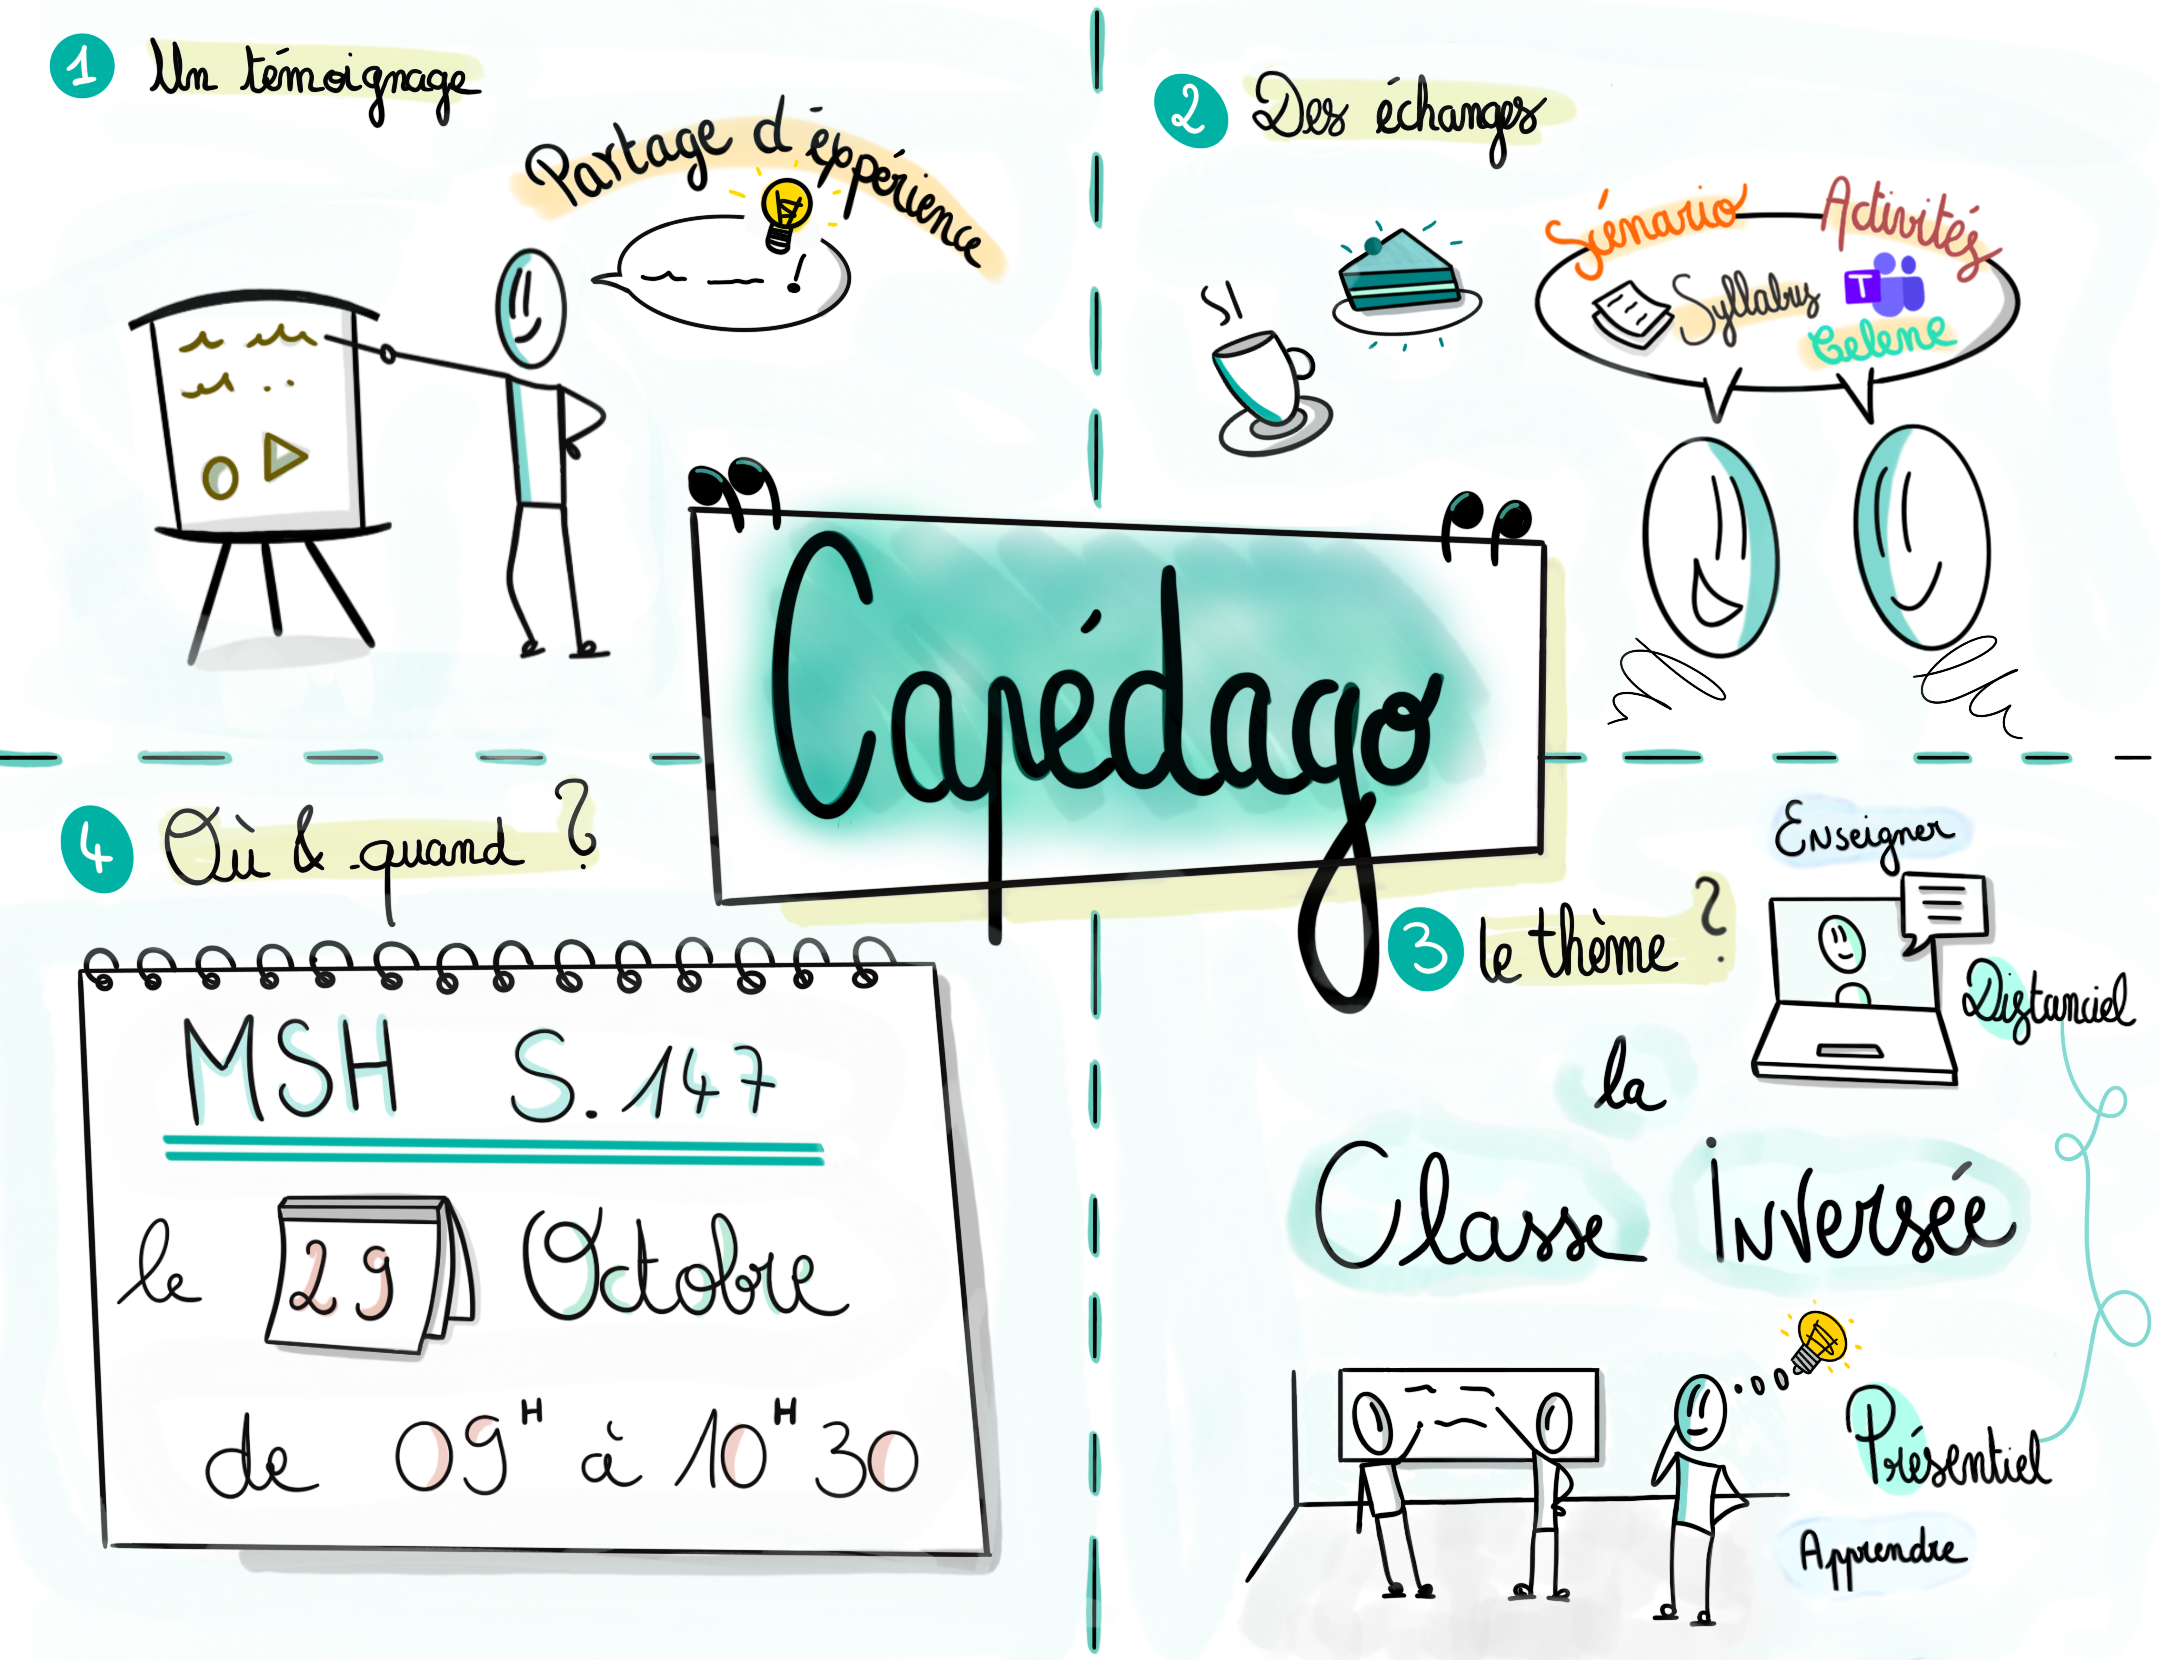 1 Un témoignage
Partage d'éxpérience
!
2 Des échanges
Scénario
Activités
Syllabus
T
Celene
Capédago
3 le thème ?
Enseigner
Distanciel
la
Classe Inversée
Présentiel
Apprendre
4 Où & quand ?
MSH S.147
le 29 Octobre
de 09H à 10H30